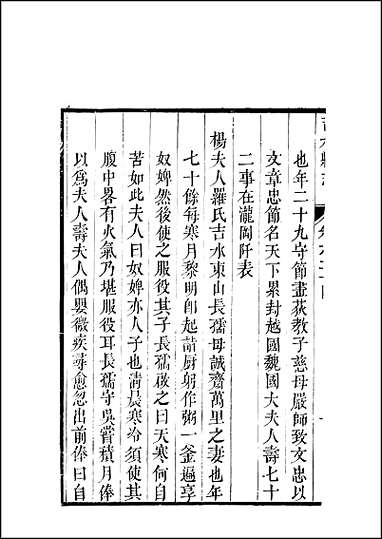 也年二十九守節畫荻教子慈母嚴師致文忠以
文章忠節名天下累封越國魏國大夫人壽七十
二事在瀧岡阡表
楊夫人羅氏吉水東山長孺母誠齋萬里之妻也年
七十餘每寒月黎明即起詣厨躬作粥一釜遍享
奴婢然後使之服役其子長孺啟之曰天寒何自
苦如此夫人曰奴婢亦人子也清晨寒冷須使其
腹中畧有火氣乃堪服役耳長孺守吳嘗積月俸
以爲夫人壽夫人偶嬰微疾尋愈忽出前俸曰自